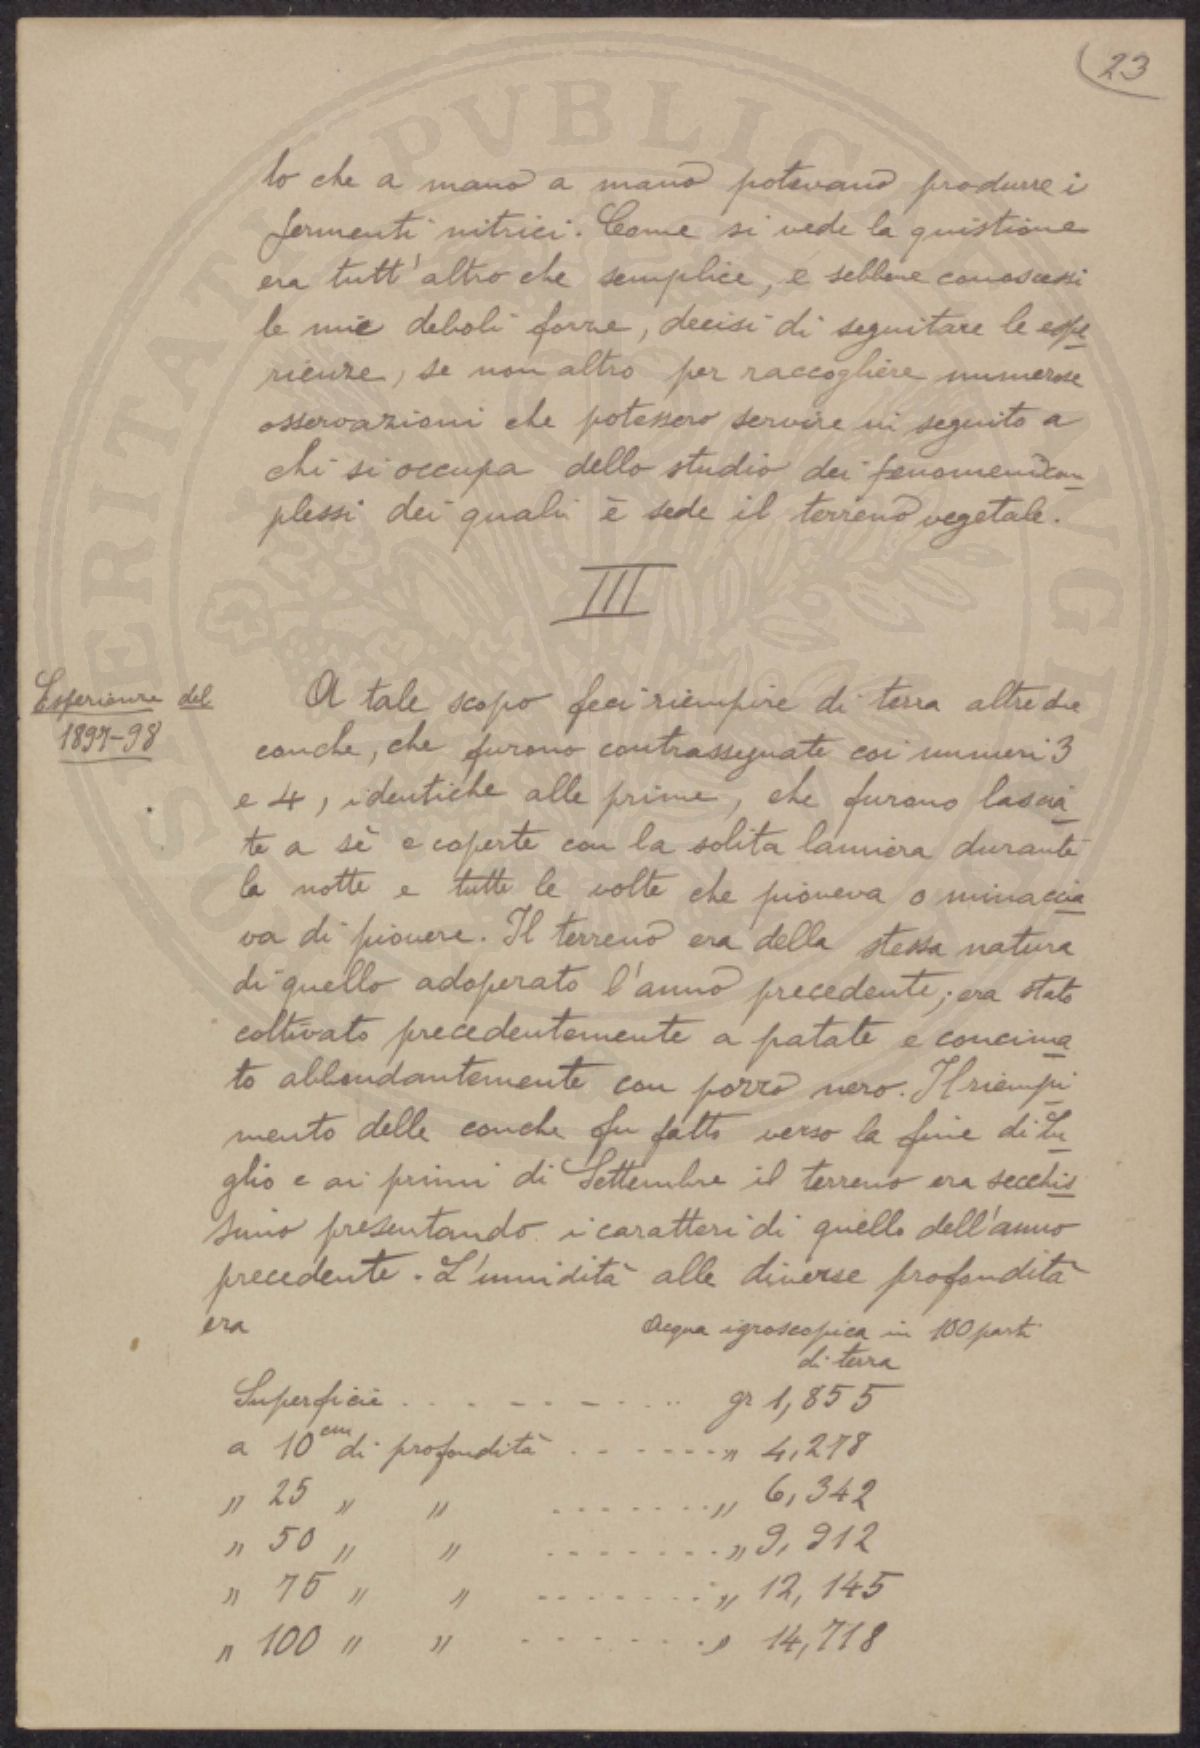 23
to che a mano a mano potevano produrre i
fermenti nitrici. Come si vede la quistione
era tutt'altro che semplice, e sebbene conoscessi
le mie deboli forze, decisi di seguitare le espe
rienze, se non altro per raccogliere numerose
osservazioni che potessero servire in seguito a
chi si occupa dello studio dei fenomeni com
plessi dei quali è sede il terreno vegetale.
III
Esperienze del
1897-98
A tale scopo feci riempire di terra altre due
conche, che furono contrassegnate coi numeri 3
e 4, identiche alle prime, che furono lascia
te a sè e coperte con la solita lamiera durante
la notte e tutte le volte che pioveva o minaccia
va di piovere. Il terreno era della stessa natura
di quello adoperato l'anno precedente; era stato
coltivato precedentemente a patate e concima
to abbondantemente con pozzo nero. Il riempi
mento delle conche fu fatto verso la fine di Lu
glio e ai primi di Settembre il terreno era secchis
simo presentando i caratteri di quello dell'anno
precedente. L'umidità alle diverse profondità
era
Acqua igroscopica in 100 parti
di terra
Superficie . . . . . . . . . . gr 1,855
a 10 cm di profondità . . . . . . . „ 4,278
„ 25 „ „ . . . . . . . „ 6,342
„ 50 „ „ . . . . . . . . „ 9,912
„ 75 „ „ . . . . . . . . „ 12,145
„ 100 „ „ . . . . . . . . „ 14,718